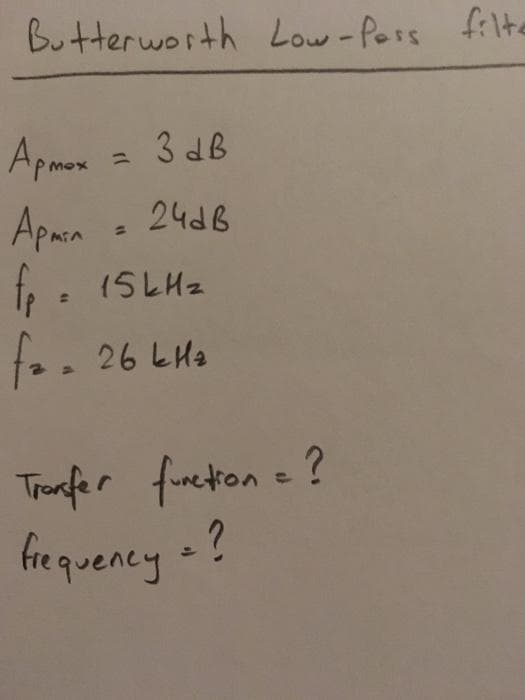 Butterworth Low-Pass filte
Apmax = 3 dB
Apmin = 24dB
fp = 15 kHz
fz = 26 kHz
Transfer function = ?
frequency = ?